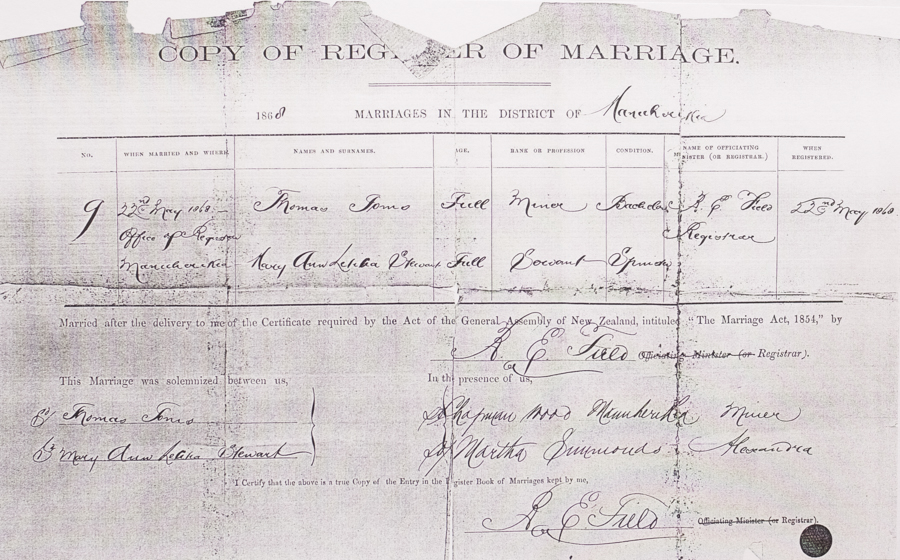 COPY OF REGISTER OF MARRIAGE.
1868 MARRIAGES IN THE DISTRICT OF Manuherikia
NO. WHEN MARRIED AND WHERE. NAMES AND SURNAMES. AGE. RANK OR PROFESSION CONDITION. NAME OF OFFICIATING MINISTER (OR REGISTRAR.) WHEN REGISTERED.
9 22nd May 1868 Thomas Full Miner Bachelor R. E. Field 22nd May 1868
Office of Registrar Registrar
Manuherikia Mary Ann Letitia Stewart Full Servant Spinster
Married after the delivery to me of the Certificate required by the Act of the General Assembly of New Zealand, intituled "The Marriage Act, 1854," by
R. E. Field Officiating Minister (or Registrar).
This Marriage was solemnized between us, In the presence of us,
Thomas Chapman Wood Manuherikia Miner
Mary Ann Letitia Stewart Martha Simmonds Alexandra
I Certify that the above is a true Copy of the Entry in the Register Book of Marriages kept by me,
R. E. Field Officiating Minister (or Registrar).